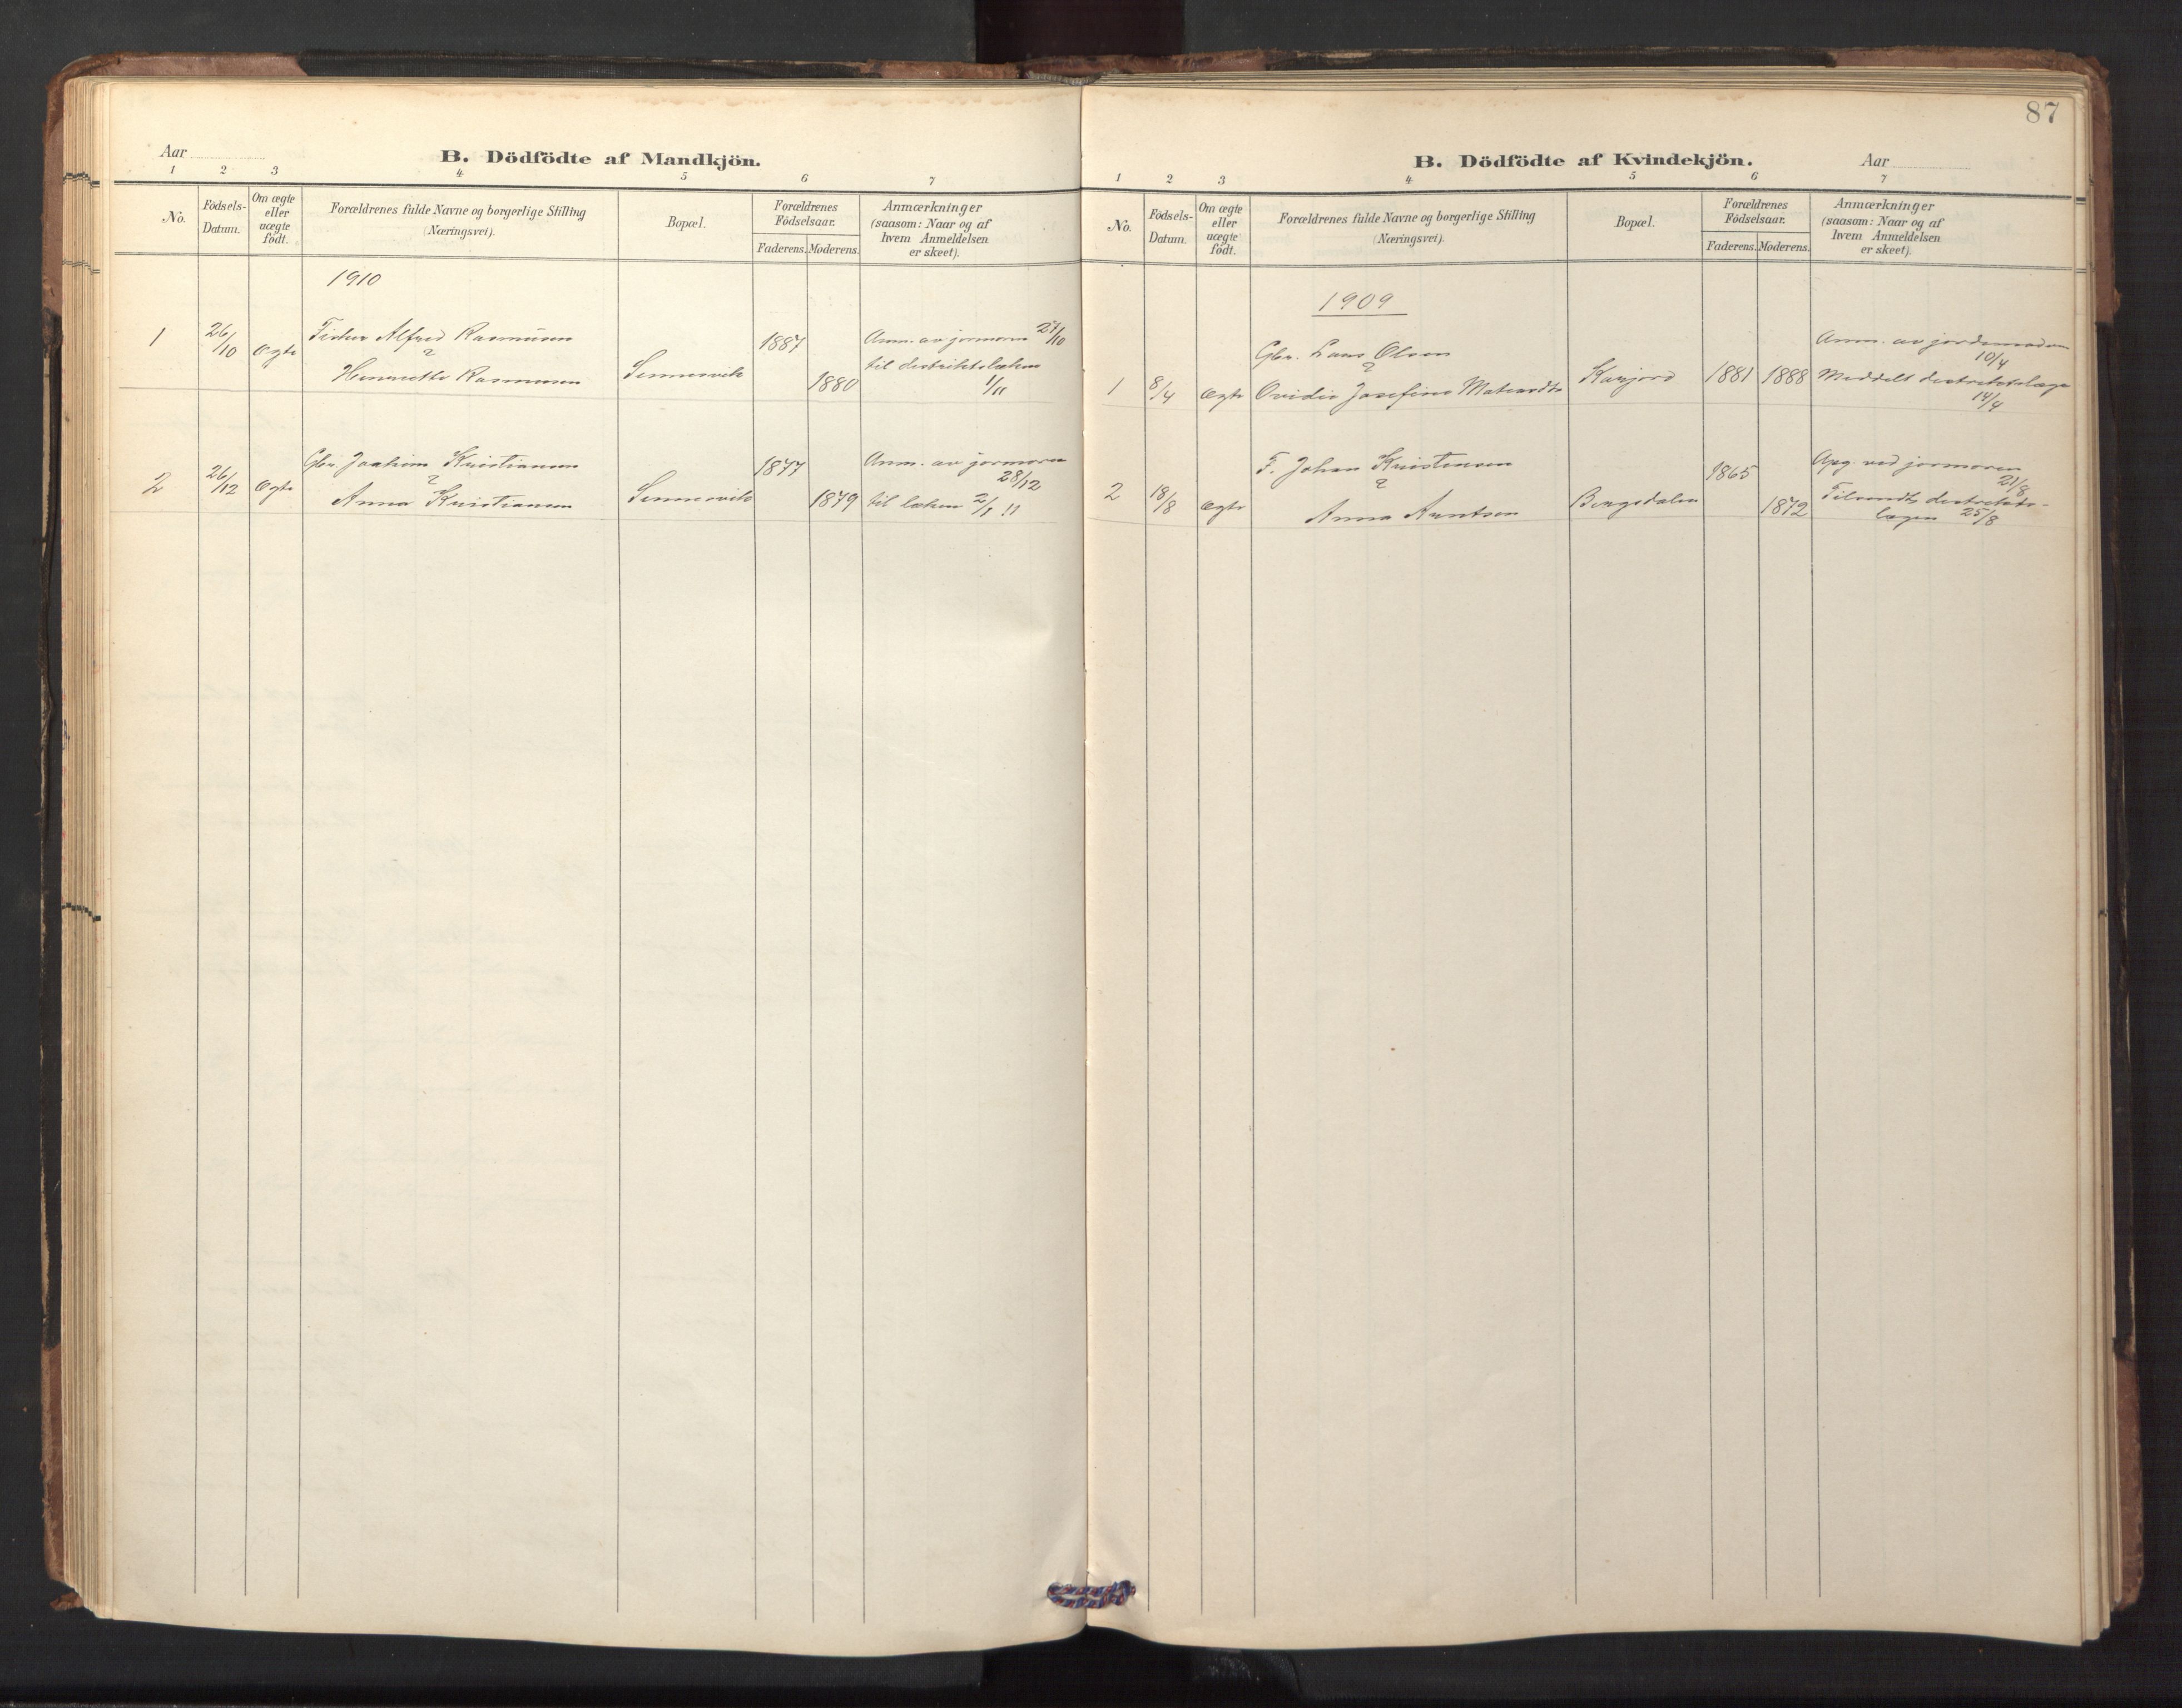 Aar
B. Dödfödte af Mandkjön.
1 2 3 4 5 6 7
No.
Födsels-
Datum.
Om ægte
eller
uægte
födt.
Forældrenes fulde Navne og borgerlige Stilling
(Næringsvei).
Bopæl.
Forældrenes
Födselsaar.
Faderens. Moderens.
Anmærkninger
(saasom: Naar og af
hvem Anmeldelsen
er skeet).
1910
1 26/10 ægte Fisker Alfred Rasmussen 1887 Anm. av jormoren 27/10
&
Henriette Rasmussen Sennesvik 1880 til distriktslæken
1/11
2 26/12 ægte Gbr. Joakim Kristiansen 1877 Anm. av jormoren
28/12
&
Anna Kristiansen Sennesvik 1879 til læken 2/1 11
87
B. Dödfödte af Kvindekjön.
Aar
1 2 3 4 5 6 7
No.
Födsels-
Datum.
Om ægte
eller
uægte
födt.
Forældrenes fulde Navne og borgerlige Stilling
(Næringsvei).
Bopæl.
Forældrenes
Födselsaar.
Faderens. Moderens.
Anmærkninger
(saasom: Naar og af
hvem Anmeldelsen
er skeet).
1909
Gbr. Lars Olsen Anm. av jordemoderen
& 10/4
1 8/4 ægte Ovidie Josefine 1881 1888 Meddelt
14/4
F. Johan Kristensen 1865 Opg. ved jormoren
& 21/8
2 18/8 ægte Anna Arntsen Bergsdalen 1872 Tilsendt distrikts-
lægen 25/8